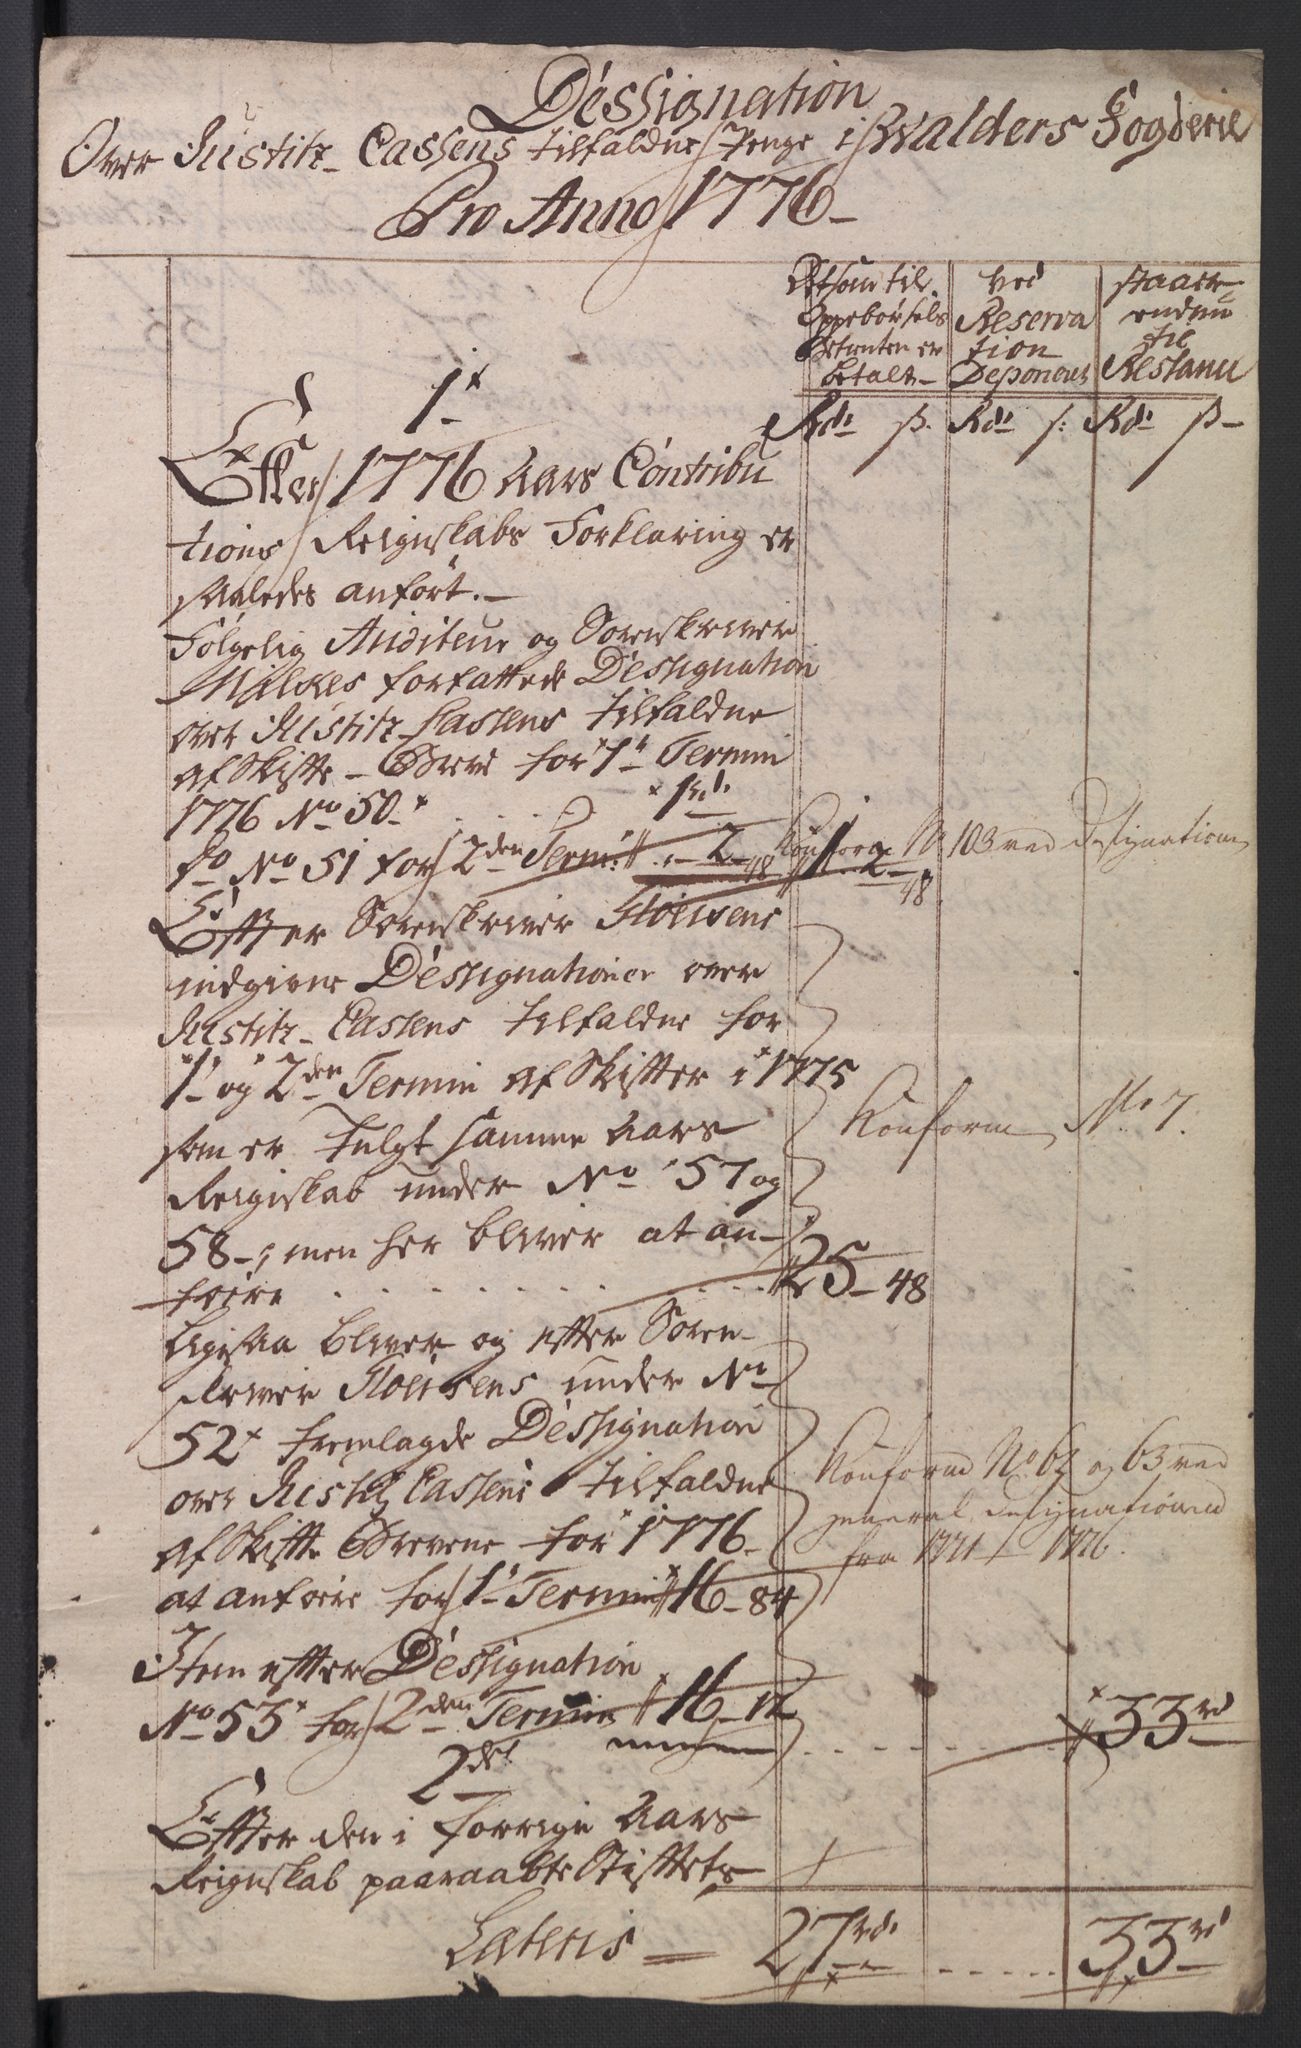 Dessignation
Over Justitz Cassens tilfaldne Penge i Walders Fogderie
Pro Anno 1776
Ao som til Oppebørsels Betienten er betalt
Ved Reservation Deponeret
Staaer endnu til Restance
Rdr ß. Rdr ß: Rdr ß
1
Efter 1776 Aars Contribu
tions Reignskabs Forklaring er
saaledes anført.
Følgelig Auditeur og Sorenskriver
forfattede Dessignation
over Justitz Cassens tilfaldne
af Skifte-Breve for 1te Termin
1776 No 50. 1rd.
Do No 51 for 2den Term: 2 48 1 2 48
Konform No 103 ved Designationen
Efter Sorenskriver Floersens
indgivne Dessignationer over
Justitz Cassens tilfaldne for
1te og 2den Termin af Skifter i 1775
som er fulgt samme Aars
Reigskab under No 57 og
58, men her bliver at an
føre 25 48
Konform No 7.
Ligesaa bliver og efter Soren
skriver Floersens under No
52 fremlagde Dessignation
over Justitz Cassens tilfaldne
af Skifte Brevene for 1776
at anføre for 1te Termin 16 84
Konform No 62 og 63 ved
general designationen
fra 1771 1776.
Item efter Dessignation
No 53 for 2den Termin 16 12
33 rd
2det
Efter den i forrige Aars
Reignskab paaraabte Stiftets
Lateris 27 rd. 33 rd